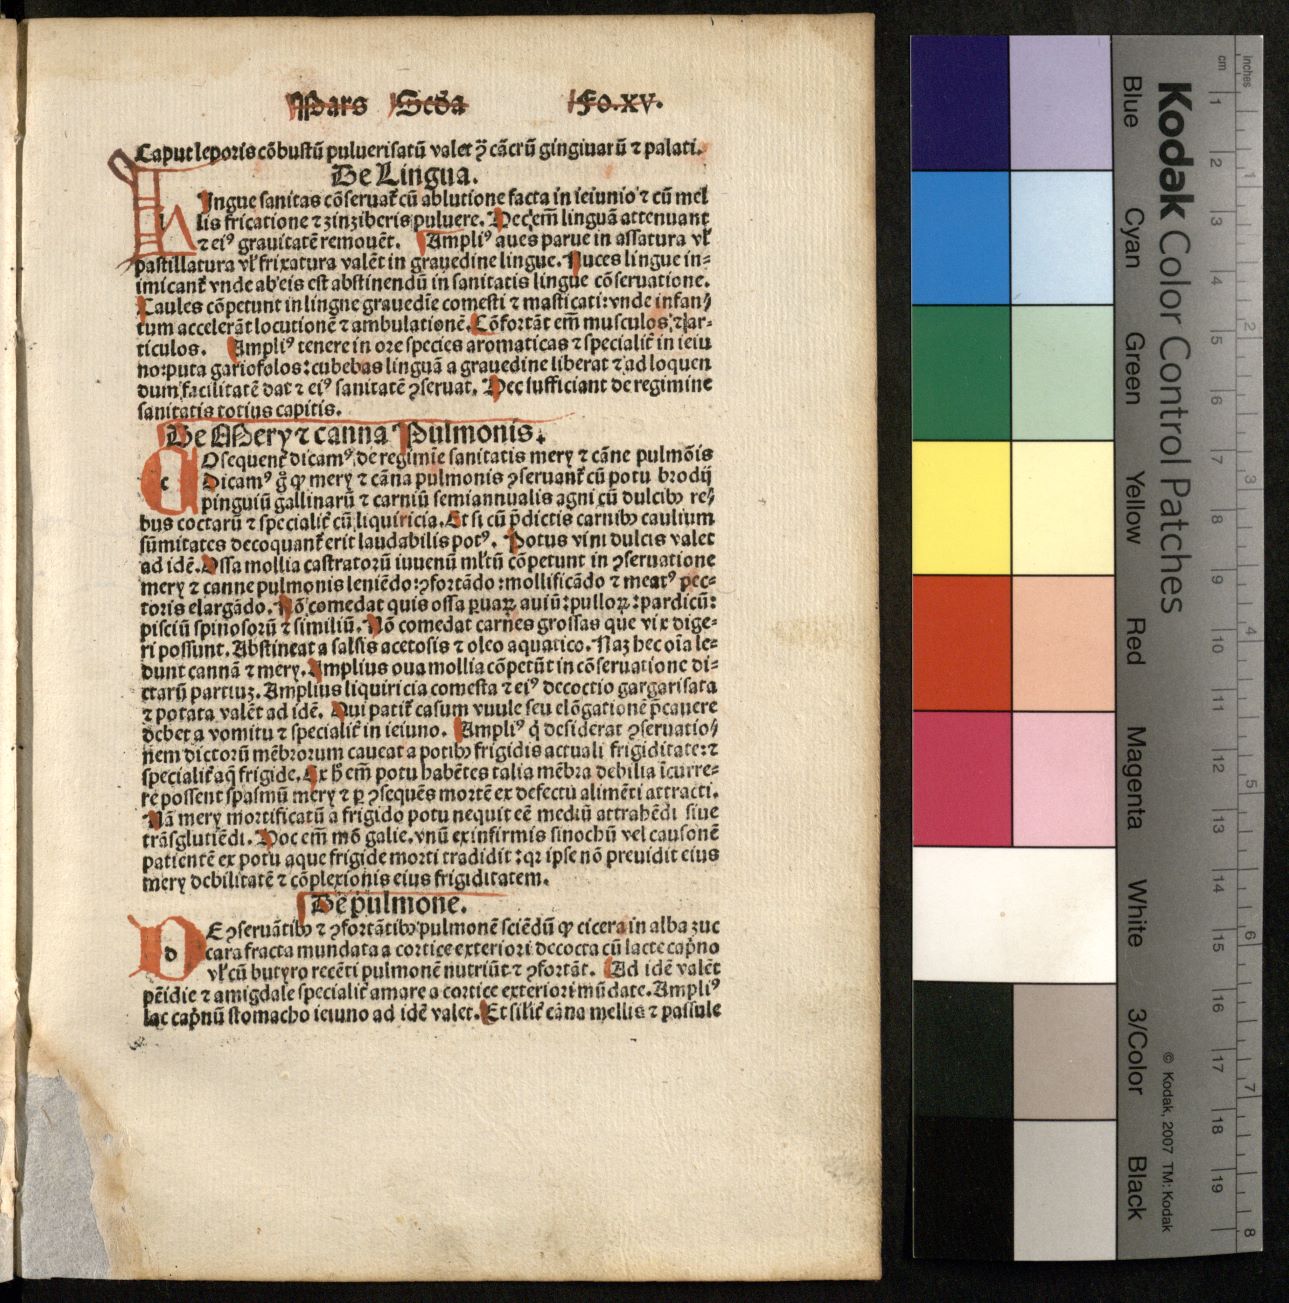 Pars Scda Fo.xv.
Caput leporis cõbustũ puluerisatũ valet ꝯ̃ cãcrũ gingiuarũ ⁊ palati.
De Lingua.
Ingue sanitas cõseruat̃ cũ ablutione facta in ieiunio ⁊ cũ mel
lis fricatione ⁊ zinziberis puluere. Hec em̃ linguã attenuant
⁊ eiꝰ grauitatẽ remouẽt. Ampliꝰ aues parue in assatura vl̃
pastillatura vl̃ frixatura valẽt in grauedine lingue. Nuces lingue in⸗
imicant̃ vnde ab eis est abstinendũ in sanitatis lingue cõseruatione.
Caules cõpetunt in lingne grauedĩe comesti ⁊ masticati: vnde infan⸗
tum accelerãt locutionẽ ⁊ ambulationẽ. Cõfortãt em̃ musculos ⁊ ar⸗
ticulos. Ampliꝰ tenere in ore species aromaticas ⁊ specialit̃ in ieiu
no: puta gariofolos: cubebas linguã a grauedine liberat ⁊ ad loquen
dum facilitatẽ dat ⁊ eiꝰ sanitatẽ ꝯseruat. Hec sufficiant de regimine
sanitatis totius capitis.
De Mery ⁊ canna Pulmonis.
c Osequent̃ dicamꝰ de regimĩe sanitatis mery ⁊ cãne pulmõis
Dicamꝰ g̃ ꝙ mery ⁊ cãna pulmonis ꝯseruant̃ cũ potu brodij
pinguiũ gallinarũ ⁊ carniũ semiannualis agni cũ dulcibꝰ re⸗
bus coctarũ ⁊ specialit̃ cũ liquiricia. Et si cũ p̃dictis carnibꝰ caulium
sũmitates decoquant̃ erit laudabilis potꝰ. Potus vini dulcis valet
ad idẽ. Ossa mollia castratorũ iuuenũ ml̃tũ cõpetunt in ꝯseruatione
mery ⁊ canne pulmonis leniẽdo: ꝯfortãdo: mollificãdo ⁊ meatꝰ pec⸗
toris elargãdo. Nõ comedat quis ossa ꝑuaꝝ auiũ: pulloꝝ: pardicũ:
pisciũ spinosorũ ⁊ similiũ. Nõ comedat carnes grossas que vix dige⸗
ri possunt. Abstineat a salsis acetosis ⁊ oleo aquatico. Naz hec oĩa le⸗
dunt cannã ⁊ mery. Amplius oua mollia cõpetũt in cõseruatione di⸗
ctarũ partiuz. Amplius liquiricia comesta ⁊ eiꝰ decoctio gargarisata
⁊ potata valẽt ad idẽ. Qui patit̃ casum vuule seu elõgationẽ p̃cauere
debet a vomitu ⁊ specialit̃ in ieiuno. Ampliꝰ q̃ desiderat ꝯseruatio⸗
nem dictorũ mẽbrorum caueat a potibꝰ frigidis actuali frigiditate: ⁊
specialit̃ aq̃ frigide. Ex h̃ em̃ potu habẽtes talia mẽbra debilia ĩcurre⸗
re possent spasmũ mery ⁊ ꝑ ꝯsequẽs mortẽ ex defectu alimẽti attracti.
Nã mery mortificatũ a frigido potu nequit eẽ mediũ attrahẽdi siue
trãsglutiẽdi. Hoc em̃ mõ galie. vnũ ex infirmis sinochũ vel causonẽ
patientẽ ex potu aque frigide morti tradidit: qꝛ ipse nõ preuidit eius
mery debilitatẽ ⁊ cõplexionis eius frigiditatem.
De pulmone.
d E ꝯseruãtibꝰ ⁊ ꝯfortãtibꝰ pulmonẽ sciẽdũ ꝙ cicera in alba zuc
cara fracta mundata a cortice exteriori decocta cũ lacte cap̃no
vl̃ cũ butyro recẽti pulmonẽ nutriũt ⁊ ꝯfortãt. Ad idẽ valẽt
pẽidie ⁊ amigdale specialit̃ amare a cortice exteriori mũdate. Ampliꝰ
lac cap̃nũ stomacho ieiuno ad idẽ valet. Et silit̃ cãna mellis ⁊ passule
Kodak Color Control Patches
Blue
Cyan
Green
Yellow
Red
Magenta
White
3/Color
Black
© Kodak, 2007 TM: Kodak
cm 1 2 3 4 5 6 7 8 9 10 11 12 13 14 15 16 17 18 19
Inches 1 2 3 4 5 6 7 8